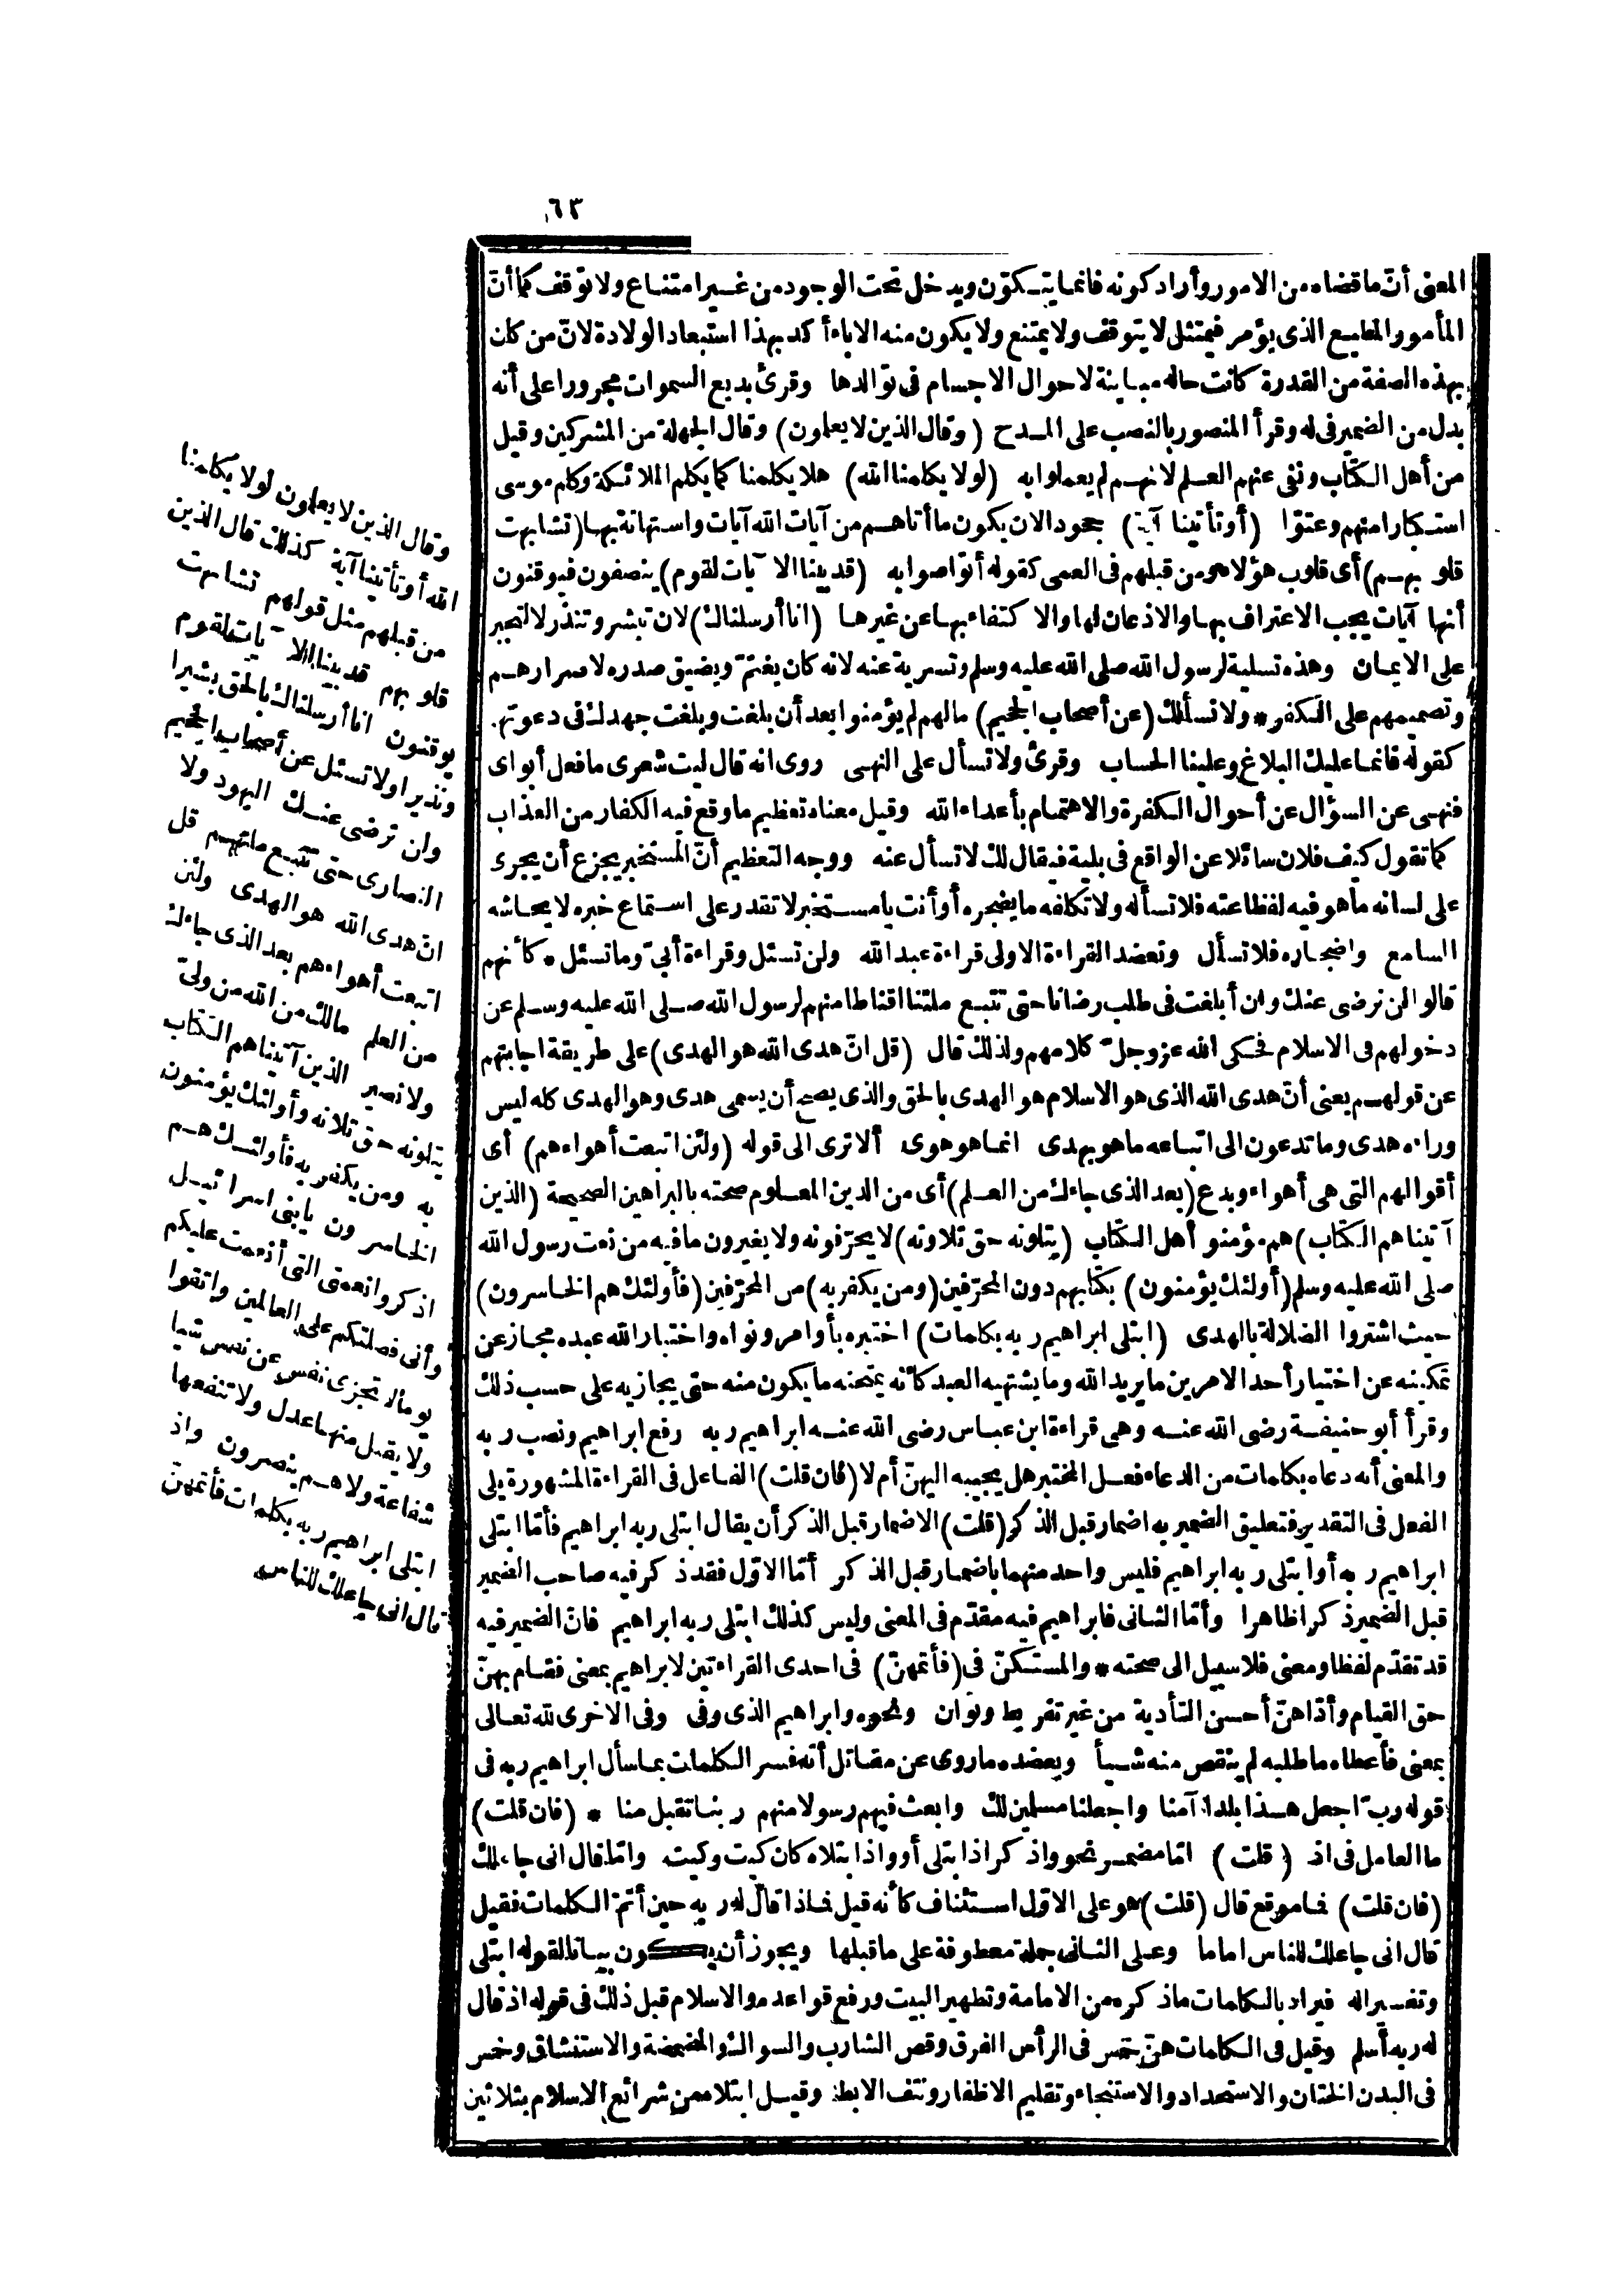 ٦٣
المعنى أنّ ما قضاه من الامور وأراد كونه فانما يتكوّن ويدخل تحت الوجود من غير امتناع ولا توقف كما أنّ
المأمور المطيع الذى يؤمر فيمتثل لا يتوقف ولا يمتنع ولا يكون منه الاباء أكد بهذا استبعاد الولادة لانّ من كان
بهذه الصفة من القدرة كانت حاله مباينة لاحوال الاجسام فى توالدها وقرئ بديع السموات مجرورا على أنه
بدل من الضمير فى له وقرأ المنصور بالنصب على المدح (وقال الذين لا يعلمون) وقال الجهلة من المشركين وقيل
من أهل الكتاب ونفى عنهم العلم لانهم لم يعملوا به (لولا يكلمنا الله) هلا يكلمنا كما يكلم الملائكة وكلم موسى
استكبارا منهم وعتوّا (أو تأتينا آية) جحودا لان يكون ما أتاهم من آيات الله آيات واستهانة بها (تشابهت
قلوبهم) أى قلوب هؤلاء ومن قبلهم فى العمى كقوله أتواصوا به (قد بينا الآيات لقوم) ينصفون فيوقنون
أنها آيات يجب الاعتراف بها والاذعان لها والاكتفاء بها عن غيرها (انا أرسلناك) لان تبشر وتنذر لا لتجبر
على الايمان وهذه تسلية لرسول الله صلى الله عليه وسلم وتسرية عنه لانه كان يغتمّ ويضيق صدره لاصرارهم
وتصميمهم على الكفر * ولا نسألك (عن أصحاب الجحيم) مالهم لم يؤمنوا بعد أن بلغت وبلغت جهدك فى دعوتهم
كقوله فانما عليك البلاغ وعلينا الحساب وقرئ ولا تسأل على النهى روى انه قال ليت شعرى ما فعل أبواى
فنهى عن السؤال عن أحوال الكفرة والاهتمام بأعداء الله وقيل معناه تعظيم ما وقع فيه الكفار من العذاب
كما تقول كيف فلان سائلا عن الواقع فى بلية فيقال لك لا تسأل عنه ووجه التعظيم أنّ المستخبر يجزع أن يجرى
على لسانه ما هو فيه لفظاعته فلا تسأله ولا تكلفه ما يضجره أو أنت يا مستخبر لا تقدر على استماع خبره لايحاشه
السامع واضجاره فلا تسأل وتعضد القراءة الاولى قراءة عبد الله ولن تسئل وقراءة أبىّ وما تسئل * كأنهم
قالوا لن نرضى عنك وان أبلغت فى طلب رضانا حتى تتبع ملتنا اقناطا منهم لرسول الله صلى الله عليه وسلم عن
دخولهم فى الاسلام فحكى الله عز وجل كلامهم ولذلك قال (قل انّ هدى الله هو الهدى) على طريقة اجابتهم
عن قولهم يعنى أنّ هدى الله الذى هو الاسلام هو الهدى بالحق والذى يصح أن يسمى هدى وهو الهدى كله ليس
وراءه هدى وما تدعون الى اتباعه ما هو بهدى انما هو هوى ألا ترى الى قوله (ولئن اتبعت أهواءهم) أى
أقوالهم التى هى أهواء وبدع (بعد الذى جاءك من العلم) أى من الدين المعلوم صحته بالبراهين الصحيحة (الذين
آتيناهم الكتاب) هم مؤمنو أهل الكتاب (يتلونه حق تلاوته) لا يحرّفونه ولا يغيرون ما فيه من نعت رسول الله
صلى الله عليه وسلم (أولئك يؤمنون) بكتابهم دون المحرّفين (ومن يكفر به) من المحرّفين (فأولئك هم الخاسرون)
حيث اشتروا الضلالة بالهدى (ابتلى ابراهيم ربه بكلمات) اختبره بأوامر ونواه واختبار الله عبده مجاز عن
تمكينه عن اختيار أحد الامرين ما يريد الله وما يشتهيه العبد كأنه يمتحنه ما يكون منه حتى يجازيه على حسب ذلك
وقرأ أبو حنيفة رضى الله عنه وهى قراءة ابن عباس رضى الله عنه ابراهيم ربه رفع ابراهيم ونصب ربه
والمعنى أنه دعاه بكلمات من الدعاء فعل المختبر هل يجيبه اليهنّ أم لا (فان قلت) الفاعل فى القراءة المشهورة يلى
الفعل فى التقدير فتعليق الضمير به اضمار قبل الذكر (قلت) الاضمار قبل الذكر أن يقال ابتلى ربه ابراهيم فأمّا ابتلى
ابراهيم ربه أو ابتلى ربه ابراهيم فليس واحد منهما باضمار قبل الذكر أمّا الاوّل فقد ذكر فيه صاحب الضمير
قبل الضمير ذكرا ظاهرا وأمّا الثانى فابراهيم فيه مقدّم فى المعنى وليس كذلك ابتلى ربه ابراهيم فانّ الضمير فيه
قد تقدّم لفظا ومعنى فلا سبيل الى صحته * والمستكنّ فى (فأتمهنّ) فى احدى القراءتين لابراهيم بمعنى فقام بهنّ
حق القيام وأدّاهنّ أحسن التأدية من غير تفريط وتوان ونحوه وابراهيم الذى وفى وفى الاخرى لله تعالى
بمعنى فأعطاه ما طلبه لم ينقص منه شيأ ويعضده ما روى عن مقاتل أنه فسر الكلمات بما سأل ابراهيم ربه فى
قوله رب اجعل هذا بلدا آمنا واجعلنا مسلمين لك وابعث فيهم رسولا منهم ربنا تقبل منا * (فان قلت)
ما العامل فى اذ (قلت) امّا مضمر نحو واذكر اذ ابتلى أو واذ ابتلاه كان كيت وكيت وامّا قال انى جاعلك
(فان قلت) فما موقع قال (قلت) هو على الاوّل استئناف كأنه قيل فماذا قال له ربه حين أتمّ الكلمات فقيل
قال انى جاعلك للناس اماما وعلى الثانى جملة معطوفة على ما قبلها ويجوز أن يكون بيانا لقوله ابتلى
وتفسيرا له فيراد بالكلمات ما ذكره من الامامة وتطهير البيت ورفع قواعده والاسلام قبل ذلك فى قوله اذ قال
له ربه أسلم وقيل فى الكلمات هنّ خمس فى الرأس الفرق وقص الشارب والسواك والمضمضة والاستنشاق وخمس
فى البدن الختان والاستحداد والاستنجاء وتقليم الاظفار ونتف الابط وقيل ابتلاه من شرائع الاسلام بثلاثين
وقال الذين لا يعلمون لولا يكلمنا
الله أو تأتينا آية كذلك قال الذين
من قبلهم مثل قولهم تشابهت
قلوبهم قد بينا الآيات لقوم
يوقنون انا أرسلناك بالحق بشيرا
ونذيرا ولا تسئل عن أصحاب الجحيم
وان ترضى عنك اليهود ولا
النصارى حتى تتبع ملتهم قل
انّ هدى الله هو الهدى ولئن
اتبعت أهواءهم بعد الذى جاءك
من العلم مالك من الله من ولىّ
ولا نصير الذين آتيناهم الكتاب
يتلونه حق تلاوته أولئك يؤمنون
به ومن يكفر به فأولئك هم
الخاسرون يا بنى اسرائيل
اذكروا نعمتى التى أنعمت عليكم
وأنى فضلتكم على العالمين واتقوا
يوما لا تجزى نفس عن نفس شيأ
ولا يقبل منها عدل ولا تنفعها
شفاعة ولا هم ينصرون واذ
ابتلى ابراهيم ربه بكلمات فأتمهنّ
قال انى جاعلك للناس